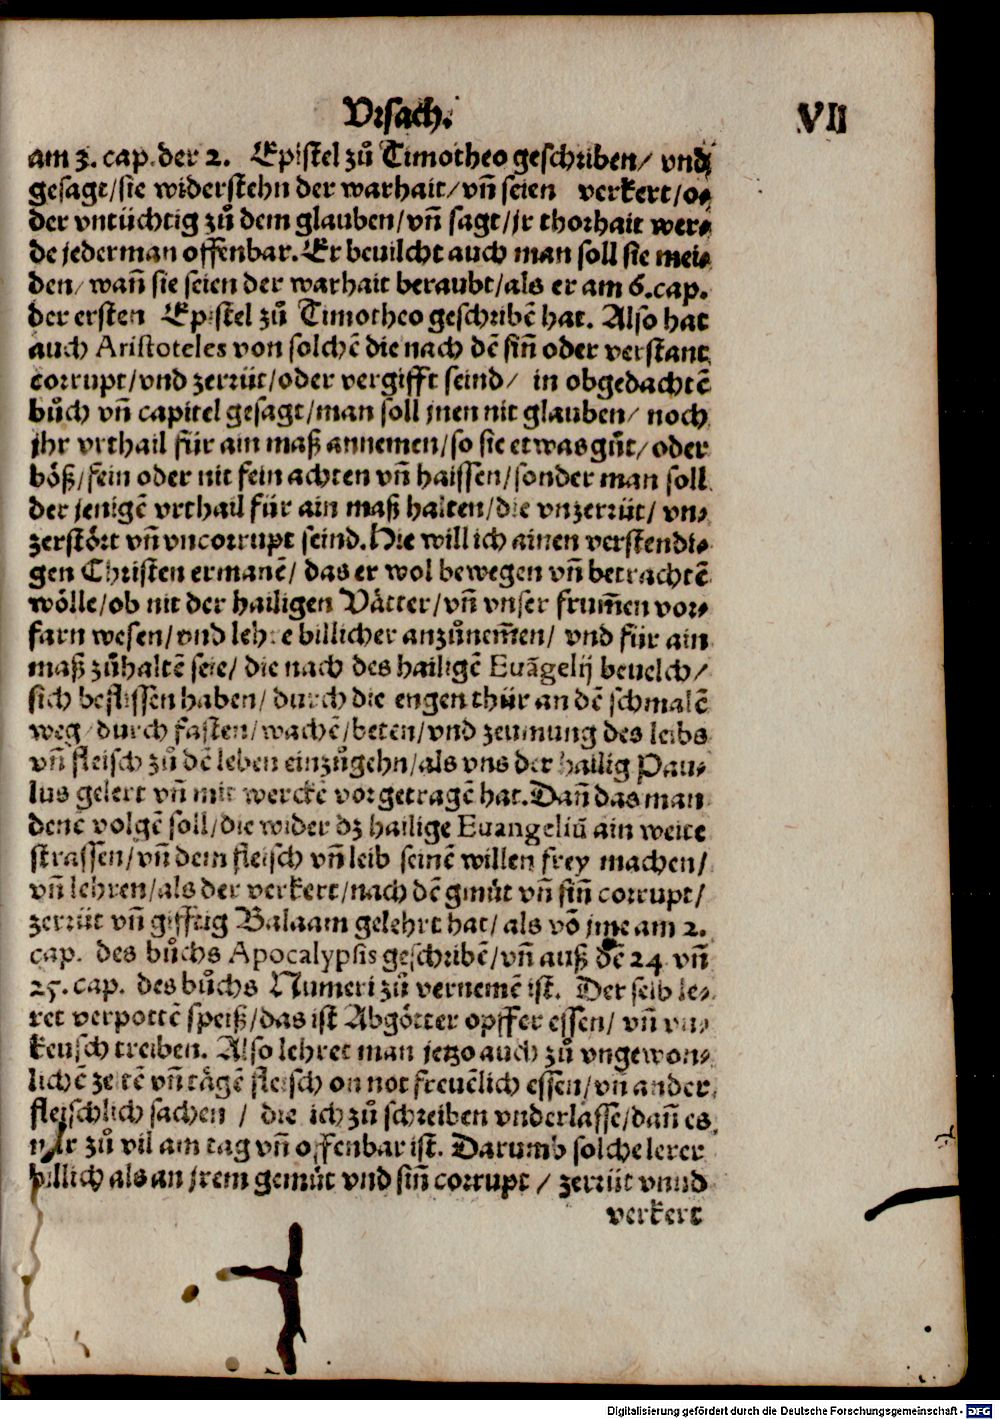 Vrsach.
VII
am 3. cap. der 2. Epistel zů Timotheo geschriben/ vnd
gesagt/sie widerstehn der warhait/vñ seien verkert/o⸗
der vntüchtig zů dem glauben/vñ sagt/jr thorhait wer⸗
de jederman offenbar. Er beuilcht auch man soll sie mei⸗
den/ wañ sie seien der warhait beraubt/als er am 6.cap.
der ersten Epistel zů Timotheo geschribẽ hat. Also hat
auch Aristoteles von solchẽ die nach dẽ siñ oder verstant
corrupt/vnd zerrüt/oder vergifft seind/ in obgedachtẽ
bůch vñ capitel gesagt/man soll jnen nit glauben/ noch
jhr vrthail für ain maß annemen/so sie etwas gůt/oder
böß/fein oder nit fein achten vñ haissen/sonder man soll
der jenigẽ vrthail für ain maß halten/die vnzerrüt/ vn⸗
zerstört vñ vncorrupt seind. Hie will ich ainen verstendi⸗
gen Christen ermanẽ/ das er wol bewegen vñ betrachtẽ
wölle/ob nit der hailigen Vätter/vñ vnser frum̃en vor⸗
farn wesen/vnd lehre billicher anzůnem̃en/ vnd für ain
maß zůhaltẽ seie/ die nach des hailigẽ Euãgelij beuelch/
sich beflissen haben/ durch die engen thür an dẽ schmalẽ
weg/ durch fasten/wachẽ/beten/vnd zeumung des leibs
vñ fleisch zů dẽ leben einzůgehn/als vns der hailig Pau⸗
lus gelert vñ mit werckẽ vorgetragẽ hat. Dañ das man
denẽ volgẽ soll/die wider dz hailige Euangeliũ ain weite
strassen/vñ dem fleisch vñ leib seinẽ willen frey machen/
vñ lehren/als der verkert/nach dẽ gmůt vñ siñ corrupt/
zerrüt vñ gifftig Balaam gelehrt hat/ als võ jme am 2.
cap. des bůchs Apocalypsis geschribẽ/vñ auß dẽ 24 vñ
25.cap. des bůchs Numeri zů vernemẽ ist. Der selb le⸗
ret verpottẽ speiß/das ist Abgötter opffer essen/ vñ vn⸗
keusch treiben. Also lehret man jetzo auch zů vngewon⸗
lichẽ zeitẽ vñ tägẽ fleisch on not freuẽlich essen/vñ ander
fleischlich sachen / die ich zů schreiben vnderlasse/dañ es
nur zů vil am tag vñ offenbar ist. Darumb solche lerer
billich als an jrem gemůt vnd siñ corrupt / zerrüt vnnd
verkert
Digitalisierung gefördert durch die Deutsche Forschungsgemeinschaft - DFG